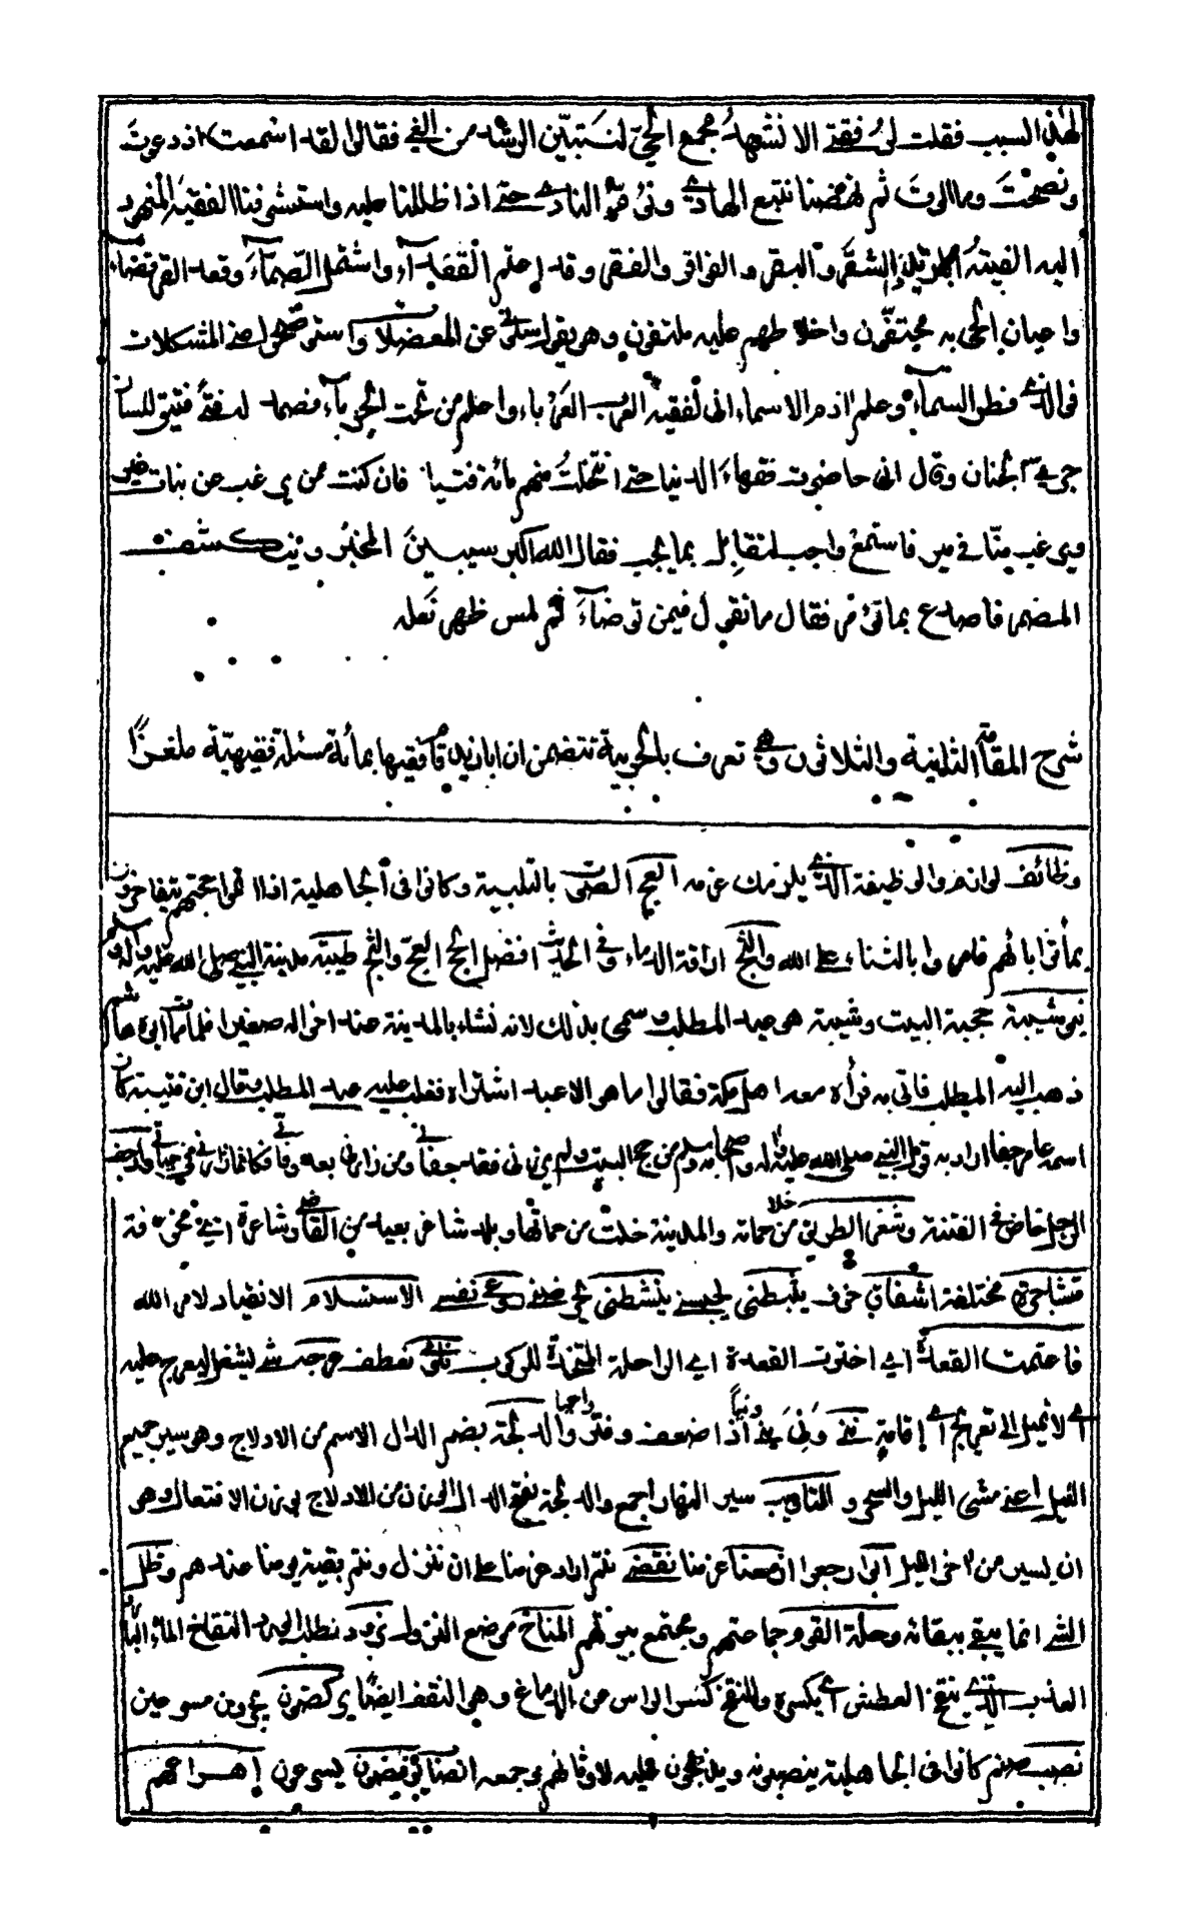 لهذا السبب فقلت لرفقتي الا نشهد مجمع الحي لنتبين الرشد من الغي فقالوا لقد اسمعت اذ دعوت
ونصحت وما الوت ثم نهضنا نتبع الهادي ونؤم النادي حتي اذا اظللنا عليه واستشرفنا الفقيه المنهود
اليه الفيته ابا زيد ذا الشقر والبقر والفواقر والفقر وقد اعتم القفدآء واشتمل الصمآء وقعد القرفصاء
واعيان الحي به محتفون واخلاطهم عليه ملتفون وهو يقول سلوني عن المعضلات واستوضحوا مني المشكلات
فو الذي فطر السمآء وعلم ادم الاسماء اني لفقيه العرب العرباء واعلم من تحت الجربآء فصمد له فتي فتيق اللسان
جري الجنان وقال اني حاضرت فقهاء الدنيا حتي انتخلت منهم مائة فتيا فان كنت ممن يرغب عن بنات غير
ويرغب منا في مير فاستمع واجب لتقابل بما يجب فقال الله اكبر سيبين المخبر وينكشف
المضمر فاصدع بما تؤمر فقال ما تقول فيمن توضاء ثم لمس ظهر نعله
شرح المقامة الثانية والثلاثون وهي تعرف بالحربية تتضمن ان ابا زيد فقيها بمائة مسئلة فقيهية ملغزا
وظائف لوازم والوظيفة الذي يلزمك غرمه العج الصوت بالتلبية وكانوا في الجاهلية اذا اقوا حجتهم يتفاخرون
بمأثر ابائهم فامروا بالثناء علي الله والثج اراقة الدماء وفي الحديث افضل الحج العج والثج طيبة مدينة النبي صلي الله عليه وآله وسلم
بني شيبة حجبة البيت وشيبة هو عبد المطلب سمي بذلك لانه نشاء بالمدينة عند اخواله صغيرا فلما مات ابوه هاشم
ذهب اليه المطلب فاتي به فرآه معه اهل مكة فقالوا ما هو الا عبد اشتراه فغلب عليه عبد المطلب وقال ابن قتيبة كان
اسمه عامر جفا اراد به قول النبي صلي الله عليه وآله واصحابه وسلم من حج البيت ولم يزرني فقد جفاني ومن زارني بعد وفاتي فكانما زارني في حياتي
الرجل خاض في الفتنة وشغر الطريق خلا من حماته والمدينة خلت من حماتها وبلد شاغر بعيد من القاضي وشاغرة
متشاجرة مختلفة اشفاق خوف يثبطني يحبسني ينشطني يحرضني روعي نفسي الاستسلام الانقياد لامر الله
فاعتمت القعدة اي اخترت القعدة اي الراحلة المتخذة للركوب نلوي نعطف عرجة شي ليشغل اليعرج عليه
اي لا نميل الي تعريج اي اقامة نني وني يني ونيا اذا ضعف وفتر والدلجة بضم الدال الاسم من الادلاج وهو سير جميع
الليل اعني مشي الليل والسحر و التاويب سير النهار اجمع والدلجة بفتح الدال من الادلاج بوزن الافتعال وهو
ان يسير من اخر الليل ابوا رجعوا ازمعنا عزمنا نقضي نتم اراد عزمنا علي ان ننزل ونتم بقية يومنا عندهم وظل
الشي انما يبقي ببقائه وحلة القوم جماعتهم ومجتمع بيوتهم المناخ موضع النزول نرود نطلب الورد النقاخ الماء البارد
العذب الذي ينقخ العطش اي يكسره والنقخ كسر الراس عن الدماغ وهو النقف ايضا يركضون يجرون مسرعين
نصب صنم كانوا في الجاهلية ينصبونه ويذبحون عليه لاوثانهم وجمعه انصاب يوفضون يسرعون اهراعهم